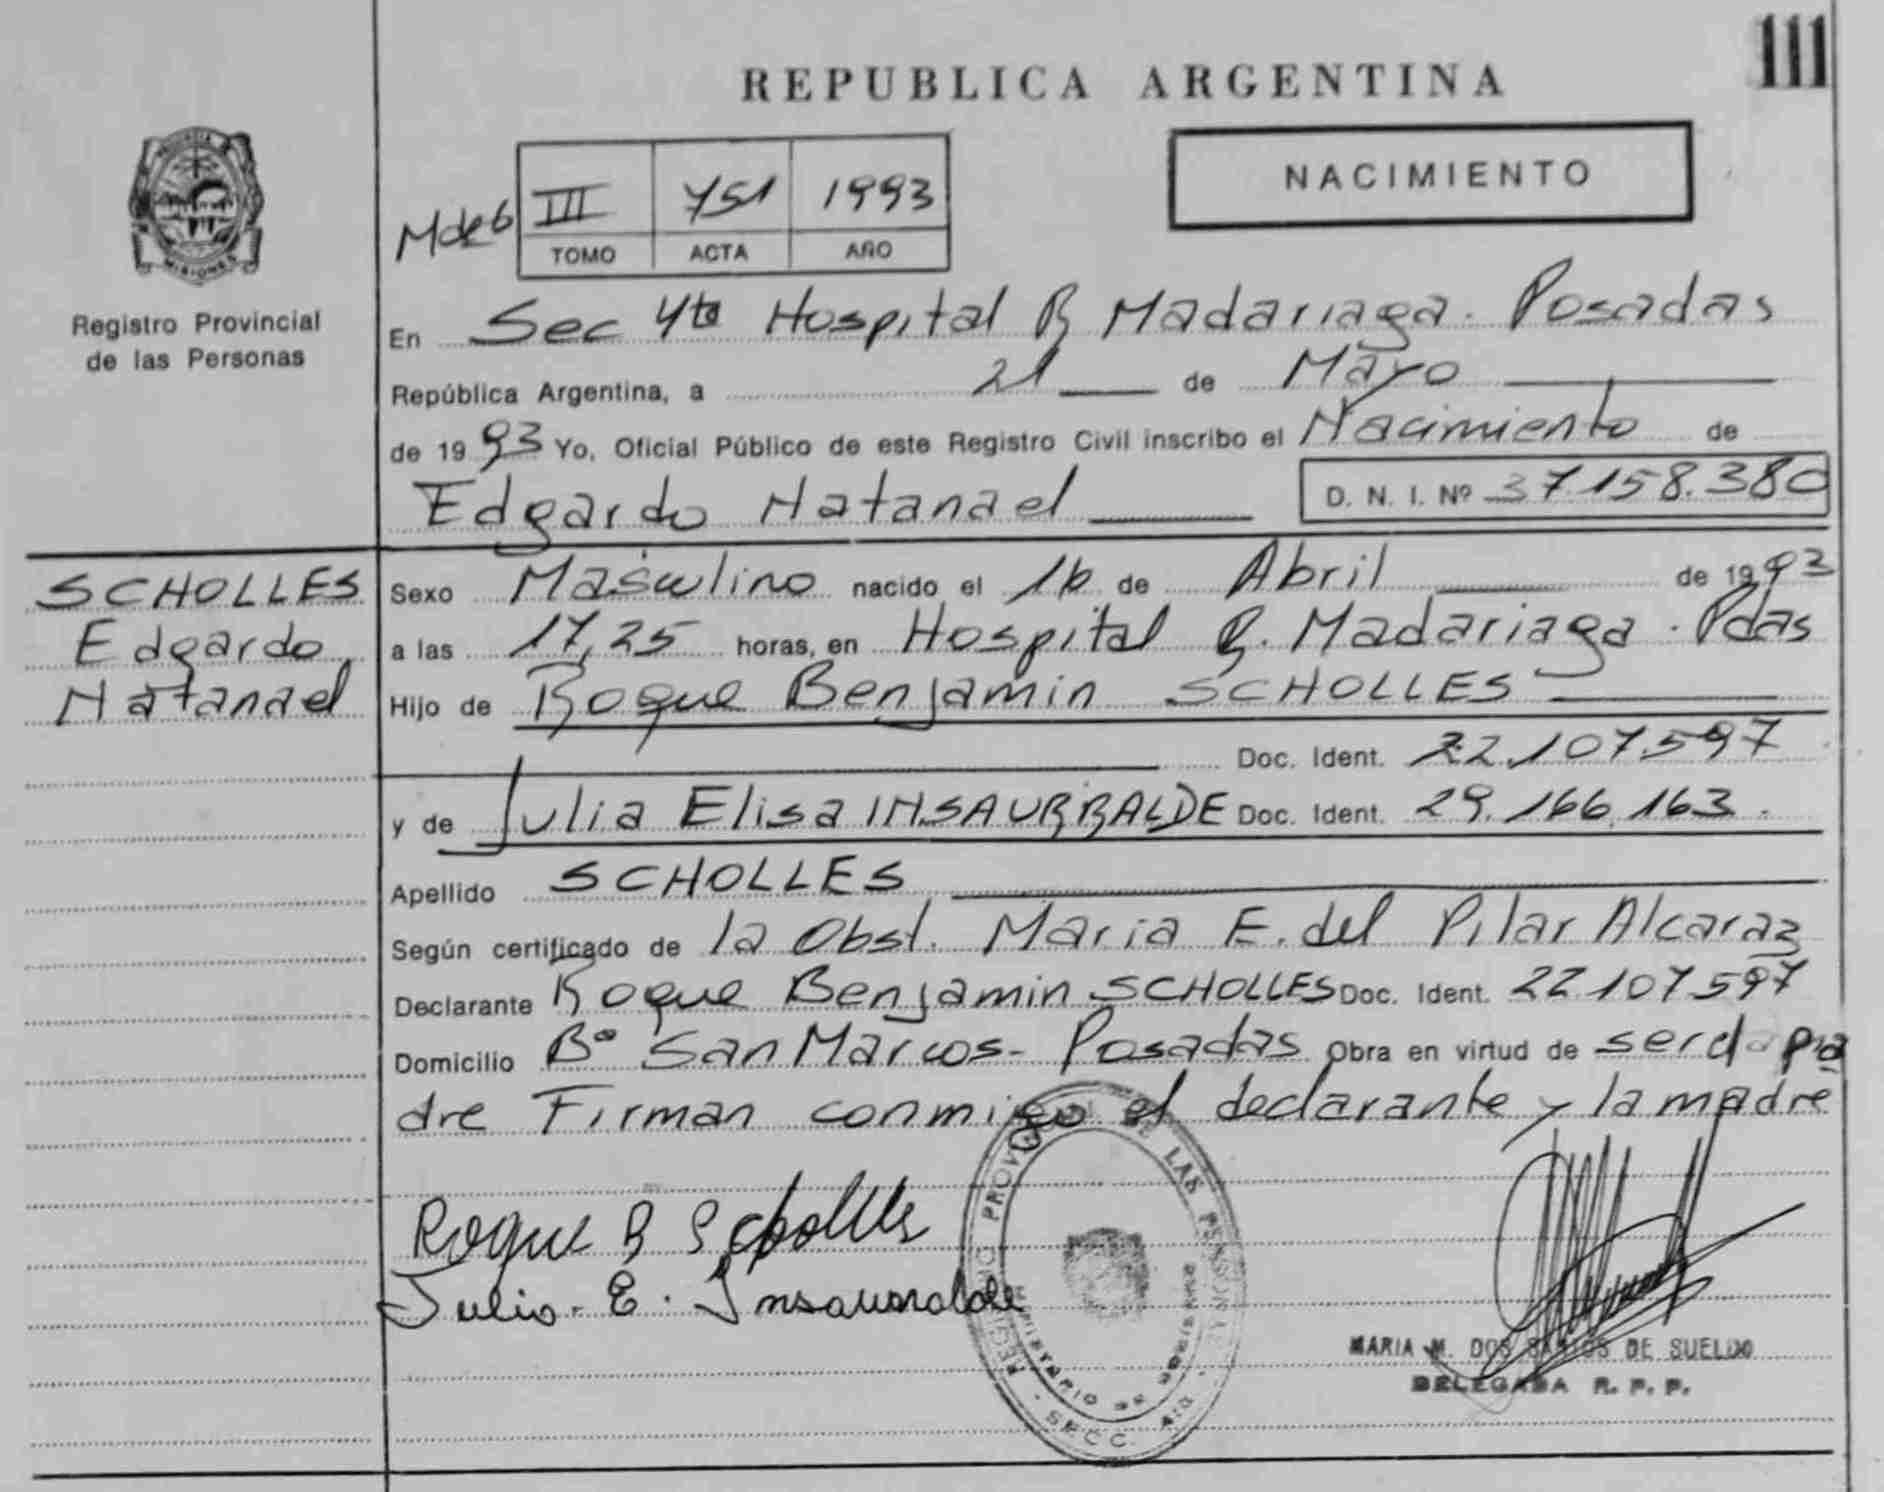 111
REPUBLICA ARGENTINA
NACIMIENTO
III 751 1993
TOMO ACTA AÑO
MISIONES
Registro Provincial
de las Personas
En Sec 4ta Hospital R Madariaga. Posadas
República Argentina, a 21 de Mayo
de 1993 Yo, Oficial Público de este Registro Civil inscribo el Nacimiento de
Edgardo Natanael D. N. I. Nº 37.158.380
SCHOLLES
Edgardo
Natanael
Sexo Masculino nacido el 16 de Abril de 1993
a las 17,25 horas, en Hospital R. Madariaga. Pdas
Hijo de Roque Benjamin SCHOLLES
Doc. Ident. 22.107.597
y de Julia Elisa INSAURRALDE Doc. Ident. 29.166.163.
Apellido SCHOLLES
Según certificado de la Obst. Maria E. del Pilar Alcaraz
Declarante Roque Benjamin SCHOLLES Doc. Ident. 22.107.597
Domicilio Bº San Marcos - Posadas Obra en virtud de ser el pa
dre Firman conmigo el declarante y la madre
Roque B Scholles
Julia. E. Insaurralde
REGISTRO PROVINCIAL DE LAS PERSONAS
MARIA M. DOS SANTOS DE SUELDO
DELEGADA R. P. P.